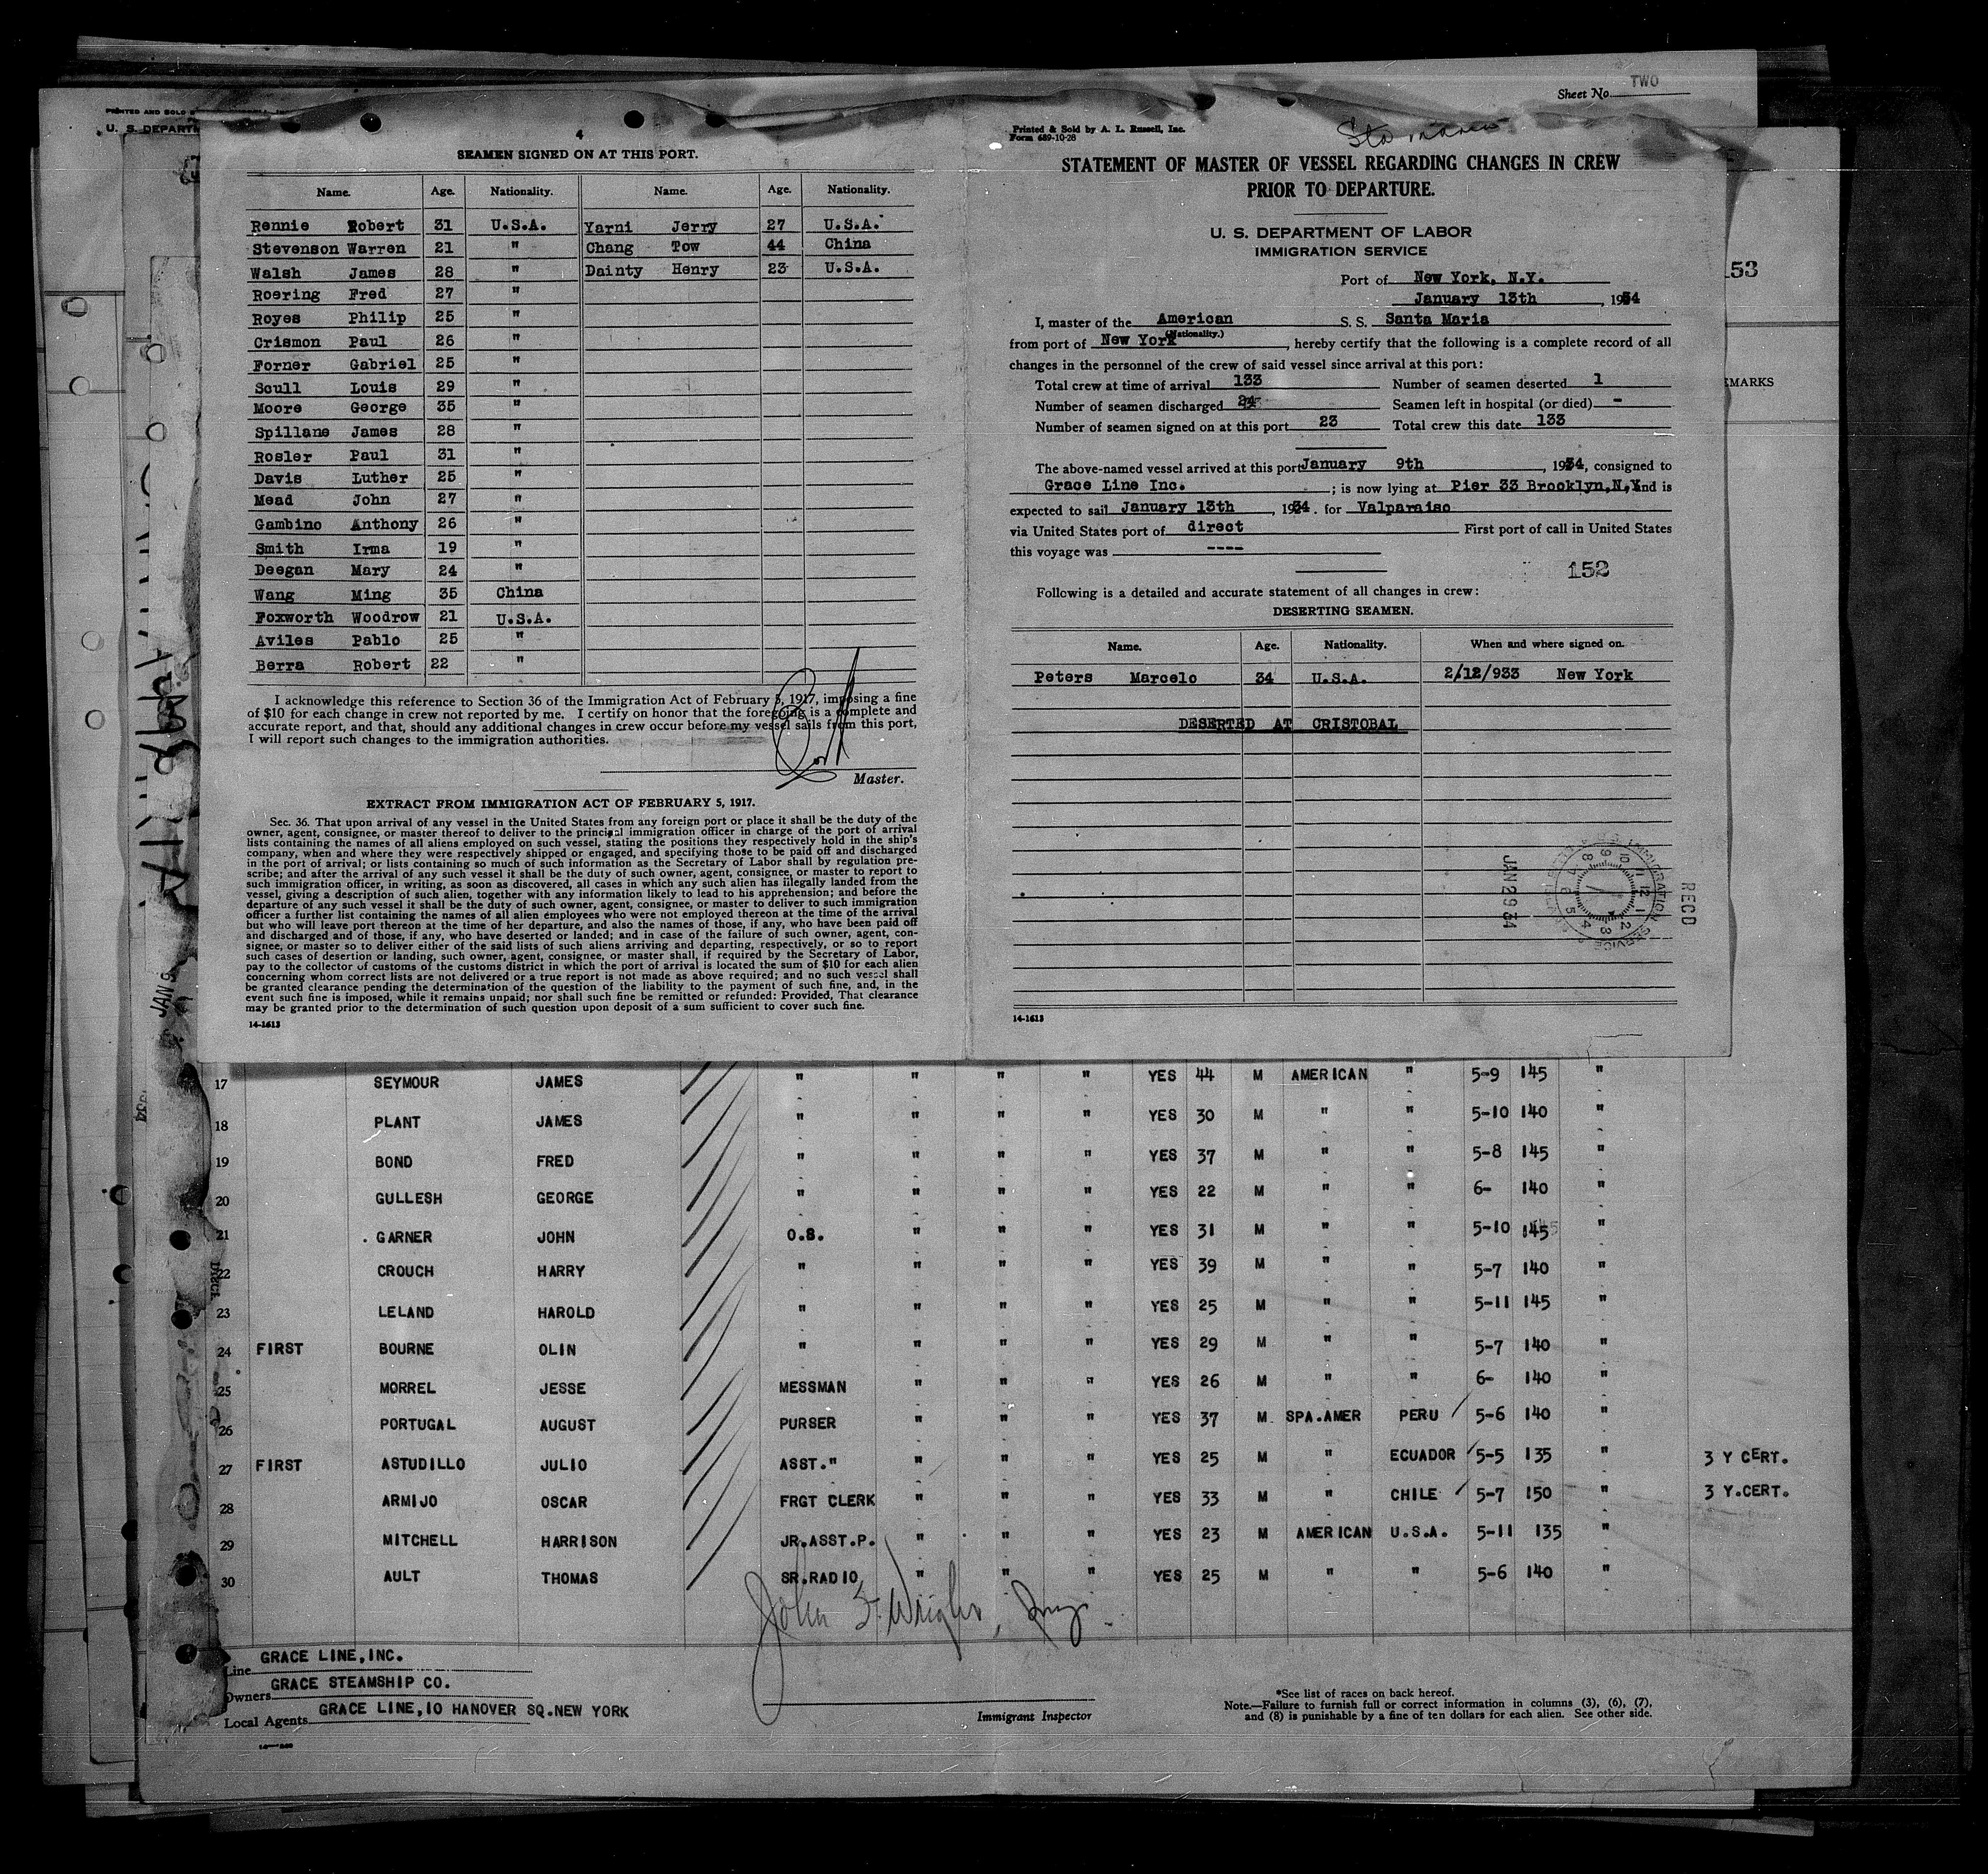 Sheet No. TWO
PRINTED AND SOLD
U. S. DEPARTM
4
SEAMEN SIGNED ON AT THIS PORT.
Name. Age. Nationality. Name. Age. Nationality.
Rennie Robert 31 U.S.A. Yarni Jerry 27 U.S.A.
Stevenson Warren 21 " Chang Tow 44 China
Walsh James 28 " Dainty Henry 23 U.S.A.
Roering Fred 27 "
Royes Philip 25 "
Crismon Paul 26 "
Forner Gabriel 25 "
Scull Louis 29 "
Moore George 35 "
Spillane James 28 "
Rosler Paul 31 "
Davis Luther 25 "
Mead John 27 "
Gambino Anthony 26 "
Smith Irma 19 "
Deegan Mary 24 "
Wang Ming 35 China
Foxworth Woodrow 21 U.S.A.
Aviles Pablo 25 "
Berra Robert 22 "
I acknowledge this reference to Section 36 of the Immigration Act of February 5, 1917, imposing a fine
of $10 for each change in crew not reported by me. I certify on honor that the foregoing is a complete and
accurate report, and that, should any additional changes in crew occur before my vessel sails from this port,
I will report such changes to the immigration authorities.
Master.
EXTRACT FROM IMMIGRATION ACT OF FEBRUARY 5, 1917.
Sec. 36. That upon arrival of any vessel in the United States from any foreign port or place it shall be the duty of the
owner, agent, consignee, or master thereof to deliver to the principal immigration officer in charge of the port of arrival
lists containing the names of all aliens employed on such vessel, stating the positions they respectively hold in the ship's
company, when and where they were respectively shipped or engaged, and specifying those to be paid off and discharged
in the port of arrival; or lists containing so much of such information as the Secretary of Labor shall by regulation pre-
scribe; and after the arrival of any such vessel it shall be the duty of such owner, agent, consignee, or master to report to
such immigration officer, in writing, as soon as discovered, all cases in which any such alien has illegally landed from the
vessel, giving a description of such alien, together with any information likely to lead to his apprehension; and before the
departure of any such vessel it shall be the duty of such owner, agent, consignee, or master to deliver to such immigration
officer a further list containing the names of all alien employees who were not employed thereon at the time of the arrival
but who will leave port thereon at the time of her departure, and also the names of those, if any, who have been paid off
and discharged and of those, if any, who have deserted or landed; and in case of the failure of such owner, agent, con-
signee, or master so to deliver either of the said lists of such aliens arriving and departing, respectively, or so to report
such cases of desertion or landing, such owner, agent, consignee, or master shall, if required by the Secretary of Labor,
pay to the collector of customs of the customs district in which the port of arrival is located the sum of $10 for each alien
concerning whom correct lists are not delivered or a true report is not made as above required; and no such vessel shall
be granted clearance pending the determination of the question of the liability to the payment of such fine, and, in the
event such fine is imposed, while it remains unpaid; nor shall such fine be remitted or refunded: Provided, That clearance
may be granted prior to the determination of such question upon deposit of a sum sufficient to cover such fine.
14-1613
Printed & Sold by A. L. Russell, Inc.
Form 689-10-28
STATEMENT OF MASTER OF VESSEL REGARDING CHANGES IN CREW
PRIOR TO DEPARTURE.
U. S. DEPARTMENT OF LABOR
IMMIGRATION SERVICE
Port of New York, N.Y.
January 13th, 1934
I, master of the American S. S. Santa Maria
(Nationality.)
from port of New York, hereby certify that the following is a complete record of all
changes in the personnel of the crew of said vessel since arrival at this port:
Total crew at time of arrival 133 Number of seamen deserted 1
Number of seamen discharged 24 Seamen left in hospital (or died) -
Number of seamen signed on at this port 23 Total crew this date 133
The above-named vessel arrived at this port January 9th, 1934, consigned to
Grace Line Inc. ; is now lying at Pier 33 Brooklyn,N,Y and is
expected to sail January 13th, 1934. for Valparaiso
via United States port of direct First port of call in United States
this voyage was ----
152
Following is a detailed and accurate statement of all changes in crew:
DESERTING SEAMEN.
Name. Age. Nationality. When and where signed on.
Peters Marcelo 34 U.S.A. 2/12/933 New York
DESERTED AT CRISTOBAL
RECD
IMMIGRATION SERVICE
JAN 29 34
14-1613
153
EMARKS
JAN 9
17 SEYMOUR JAMES " " " " YES 44 M AMERICAN " 5-9 145 "
18 PLANT JAMES " " " " YES 30 M " " 5-10 140 "
19 BOND FRED " " " " YES 37 M " " 5-8 145 "
20 GULLESH GEORGE " " " " YES 22 M " " 6- 140 "
21 GARNER JOHN O.S. " " " YES 31 M " " 5-10 145 "
22 CROUCH HARRY " " " " YES 39 M " " 5-7 140 "
23 LELAND HAROLD " " " " YES 25 M " " 5-11 145 "
24 FIRST BOURNE OLIN " " " " YES 29 M " " 5-7 140 "
25 MORREL JESSE MESSMAN " " " YES 26 M " " 6- 140 "
26 PORTUGAL AUGUST PURSER " " " YES 37 M SPA.AMER PERU 5-6 140 "
27 FIRST ASTUDILLO JULIO ASST." " " " YES 25 M " ECUADOR 5-5 135 " 3 Y CERT.
28 ARMIJO OSCAR FRGT CLERK " " " YES 33 M " CHILE 5-7 150 " 3 Y.CERT.
29 MITCHELL HARRISON JR.ASST.P. " " " YES 23 M AMERICAN U.S.A. 5-11 135 "
30 AULT THOMAS SR.RADIO " " " YES 25 M " " 5-6 140 "
Line GRACE LINE,INC.
Owners GRACE STEAMSHIP CO.
Local Agents GRACE LINE,10 HANOVER SQ.NEW YORK
Immigrant Inspector
*See list of races on back hereof.
Note.—Failure to furnish full or correct information in columns (3), (6), (7),
and (8) is punishable by a fine of ten dollars for each alien. See other side.